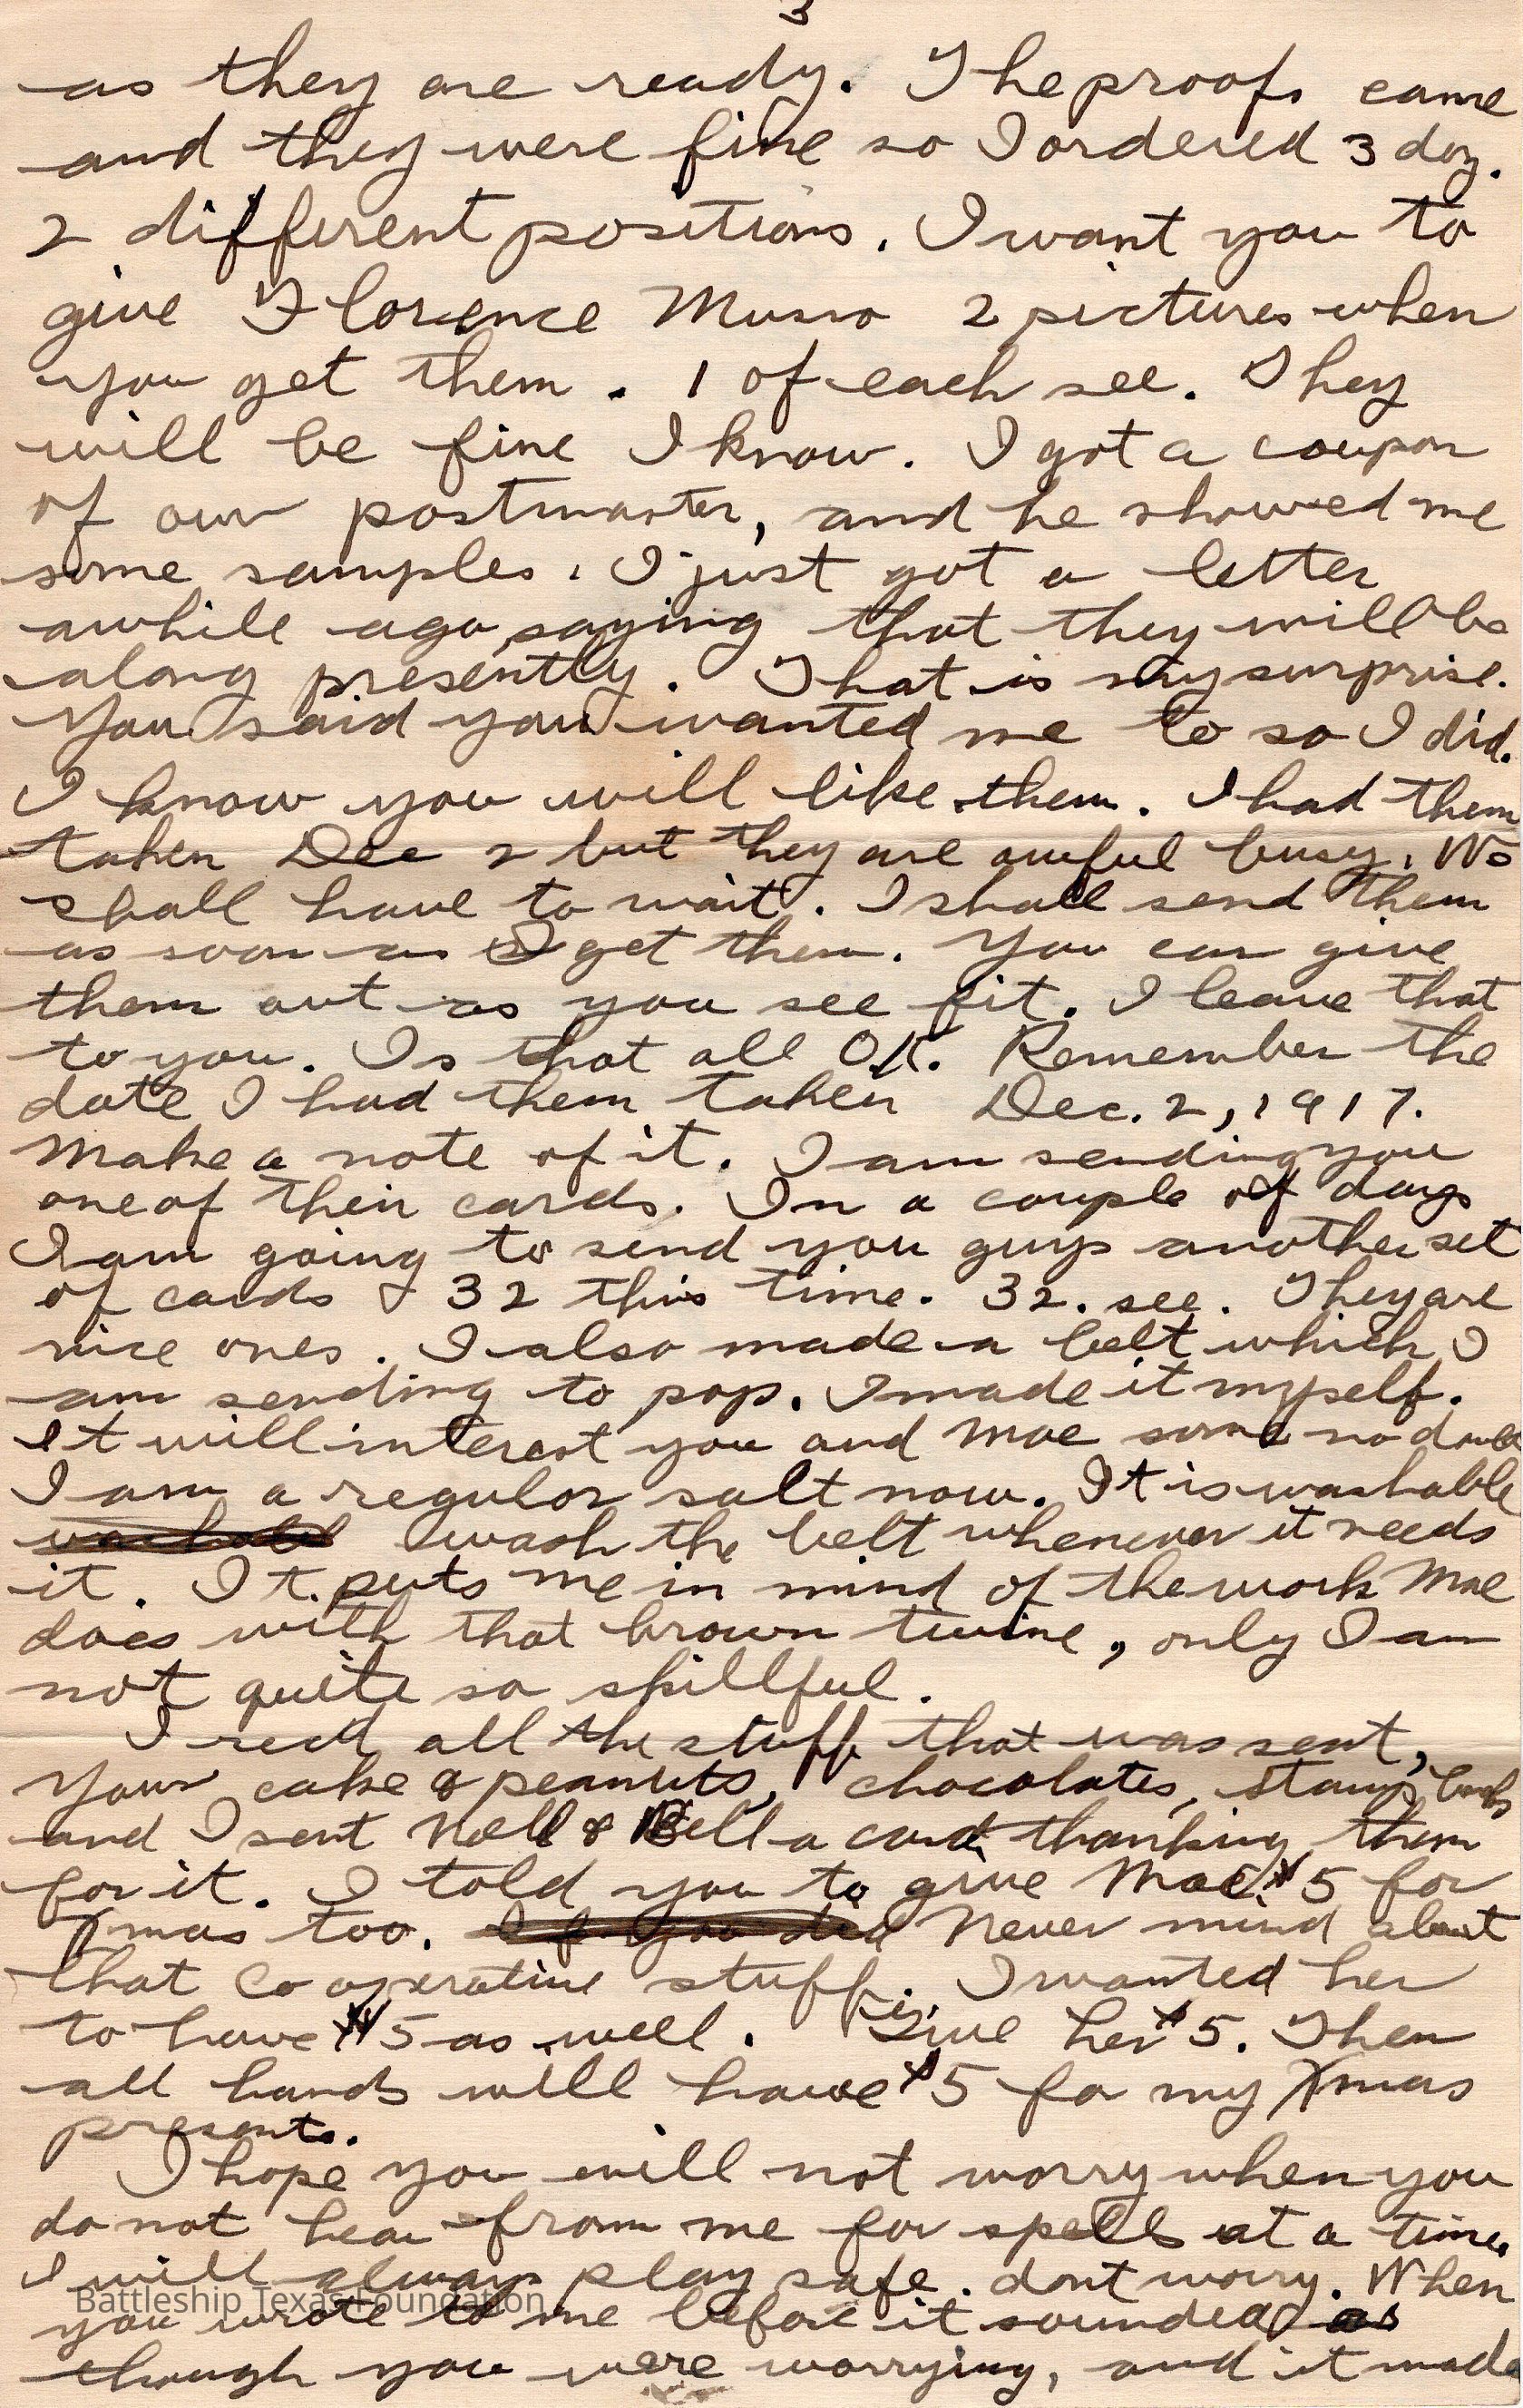 3
as they are ready. The proofs came
and they were fine so I ordered 3 doz.
2 different positions. I want you to
give Florence Munro 2 pictures when
you get them. 1 of each see. They
will be fine I know. I got a coupon
of our postmaster, and he showed me
some samples. I just got a letter
awhile ago, saying that they will be
along presently. That is my surprise.
You said you wanted me to so I did.
I know you will like them. I had them
taken Dec 2 but they are awful busy. We
shall have to wait. I shall send them
as soon as I get them. You can give
them out as you see fit. I leave that
to you. Is that all O.K. Remember the
date I had them taken Dec. 2, 1917.
Make a note of it. I am sending you
one of their cards. In a couple of days
I am going to send you guys another set
of cards & 32 this time. 32. see. They are
nice ones. I also made a belt which I
am sending to pop. I made it myself.
It will interest you and Mae some no doubt
I am a regular salt now. It is washable
wash the belt whenever it needs
it. It puts me in mind of the work Mae
does with that brown twine, only I am
not quite so skillful.
I recd all the stuff that was sent,
Your cake & peanuts, chocolates, stamp books
and I sent Nell & Bell a card thanking them
for it. I told you to give Mae $5 for
Xmas too. If you did Never mind about
that Cooperative stuff. I wanted her
to have $5 as well. Give her $5. Then
all hands will have $5 for my Xmas
presents.
I hope you will not worry when you
do not hear from me for spells at a time.
I will always play safe. dont worry. When
you wrote to me before it sounded as
though you were worrying, and it made
Battleship Texas Foundation